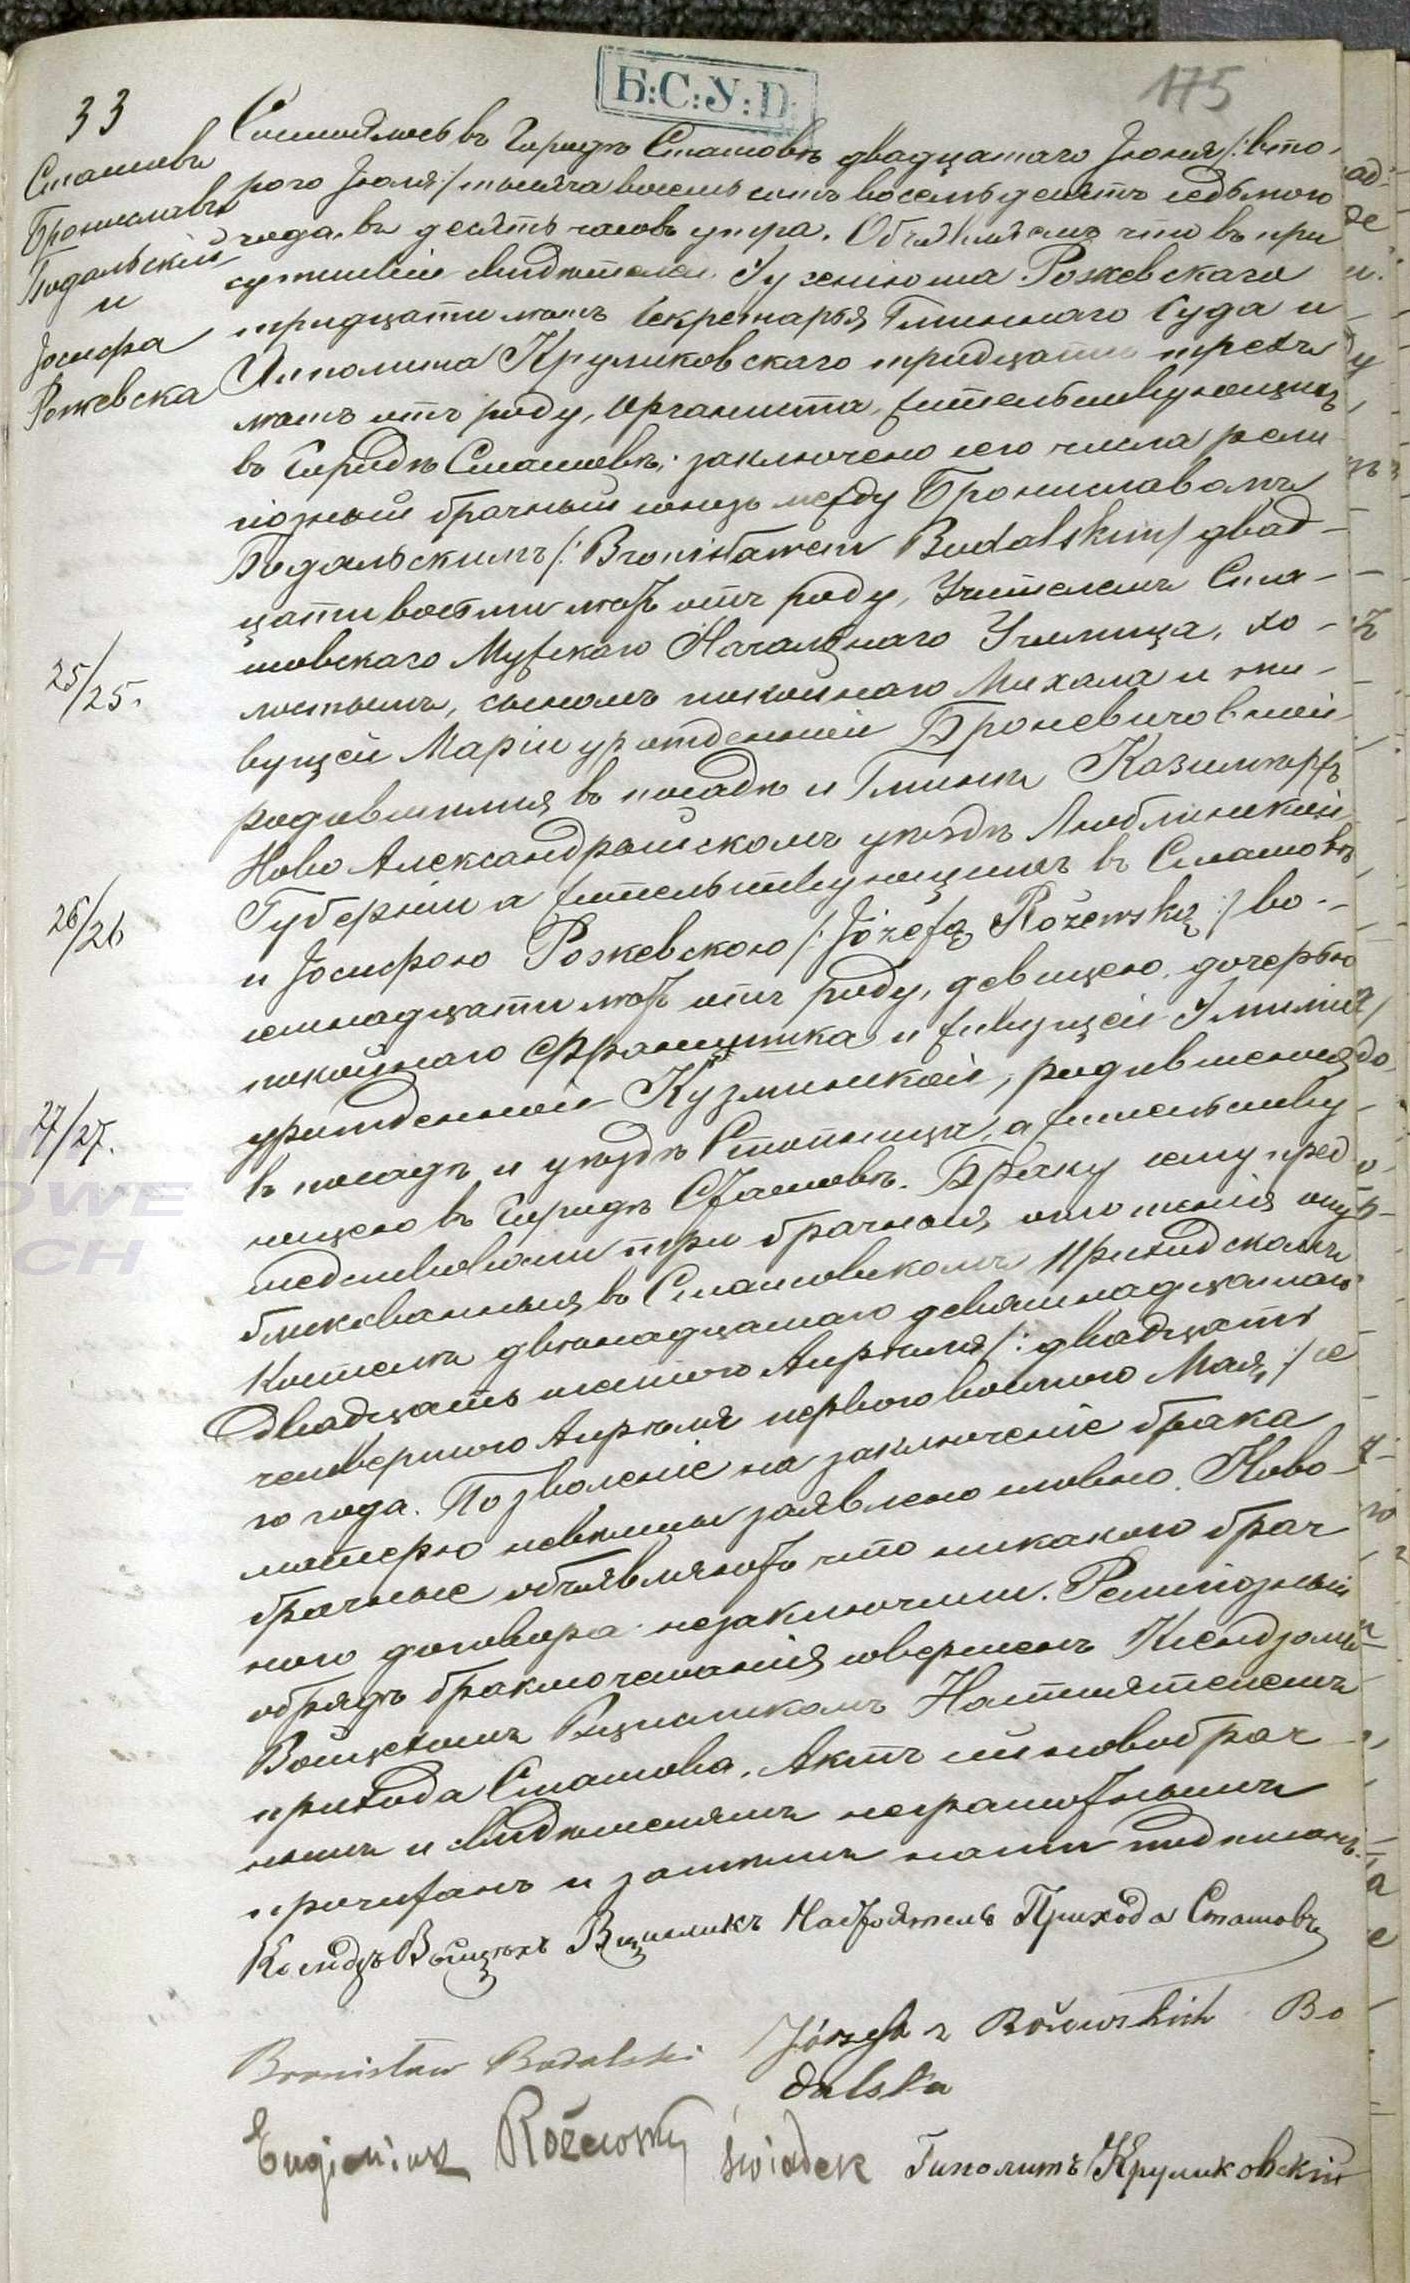 Б:С:У:П:
175
33
Сташовъ
Брониславъ
Бодальскій
и
Іосифа
Рожевска
Состоялось въ Городѣ Сташовѣ двадцатаго Іюня /: вто-
рого Іюля / тысяча восемь сотъ восемьдесятъ седьмого
года, въ десять часовъ утра. Объявляемъ что въ при
сутствіи свидѣтелей Эугеніюша Рожевскаго
тридцати лѣтъ Секретарья Гминнаго Суда и
Ипполита Круликовскаго тридцати трехъ
лѣтъ отъ роду, Органиста, жительствующихъ
въ Городѣ Сташовѣ; заключено сего числа рели
гіозный брачный союзъ между Брониславомъ
Бодальскимъ /: Bronisławem Bodalskim / двад-
цати восьми лѣтъ отъ роду, Учителемъ Ста-
шовскаго Мужскаго Начальнаго Училища, хо-
лостымъ, сыномъ покойнаго Михала и жи-
вущей Маріи урожденной Броневичовной
родившимся въ посадѣ и Гминѣ Казимержъ
Ново Александрыйскомъ уѣздѣ Люблинской
Губерніи а жительствующимъ въ Сташовѣ
и Іосифою Рожевскою /: Józefą Rożewską :/ во-
семнадцати лѣтъ отъ роду, дѣвицею, дочерью
покойнаго Францишка и живущей Эмиліи
урожденной Кузминской, родившеюся
въ посадѣ и уѣздѣ Стопница, а жительству-
ющею въ Городѣ Сташовѣ. Браку сему пред
шествовали три брачныя оглашенія опу
бликованныя въ Сташовскомъ Приходскомъ
Костелѣ двѣнадцатаго девятнадцатаго
двадцать шестого Апрѣля /: двадцать
четвертого Апрѣля первого восьмого Мая :/ се
го года. Позволеніе на заключеніе брака
матерю невѣсты заявлено словно. Ново-
брачные объявляютъ что никакого брач
ного договора незаключили. Религіозный
обрядъ бракосочетанія совершенъ Ксендзомъ
Войцехомъ Настоятелемъ
прихода Сташова. Актъ сей новобрач
нымъ и свидѣтелямъ неграмотнымъ
прочитанъ и затѣмъ нами подписанъ.
Ксендзъ Войцехъ Настоятель Прихода Сташовъ
Bronisław Bodalski Józefa z Rożewskich Bo
dalska
Eugieniusz Rożewski świadek Гиполитъ Круликовскій
25/25.
26/26
27/27.
OWE
CH